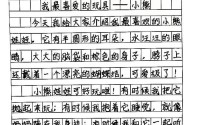 我最喜爱的玩具——小熊
今天我给大家介绍我最喜欢的小熊
娃娃，它有半圆形的耳朵，水汪汪的眼
睛，大大的脑袋和棕色的身子，脖子上
还戴着一个漂亮的蝴蝶结，可爱极了！
小熊娃娃可好玩啦！有时候我把它
抛起来玩；有时候我抱着它睡觉，就像